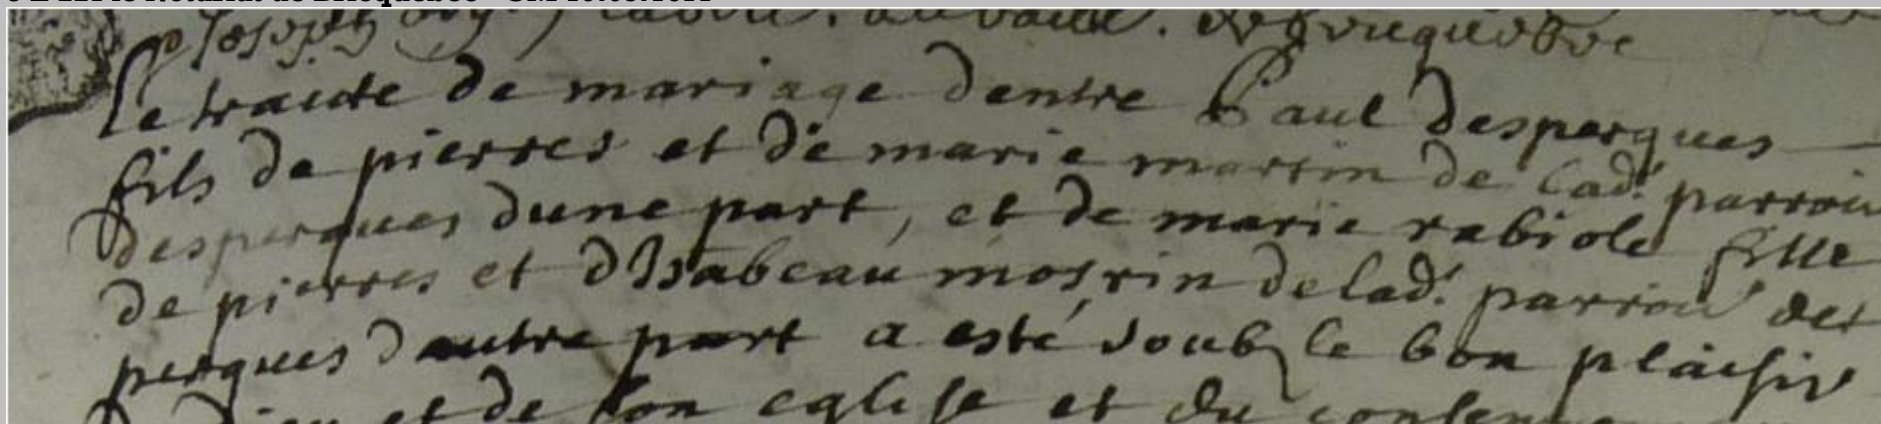 Joseph
Le traicte de mariage dentre Paul desperques
fils de pierres et de marie martin de lad. parroiss
desperques dune part, et de marie rabiole fille
de pierres et disabeau mosrin de lad. parrois des
perques dautre part a esté soubz le bon plaisir
et de son eglise et du